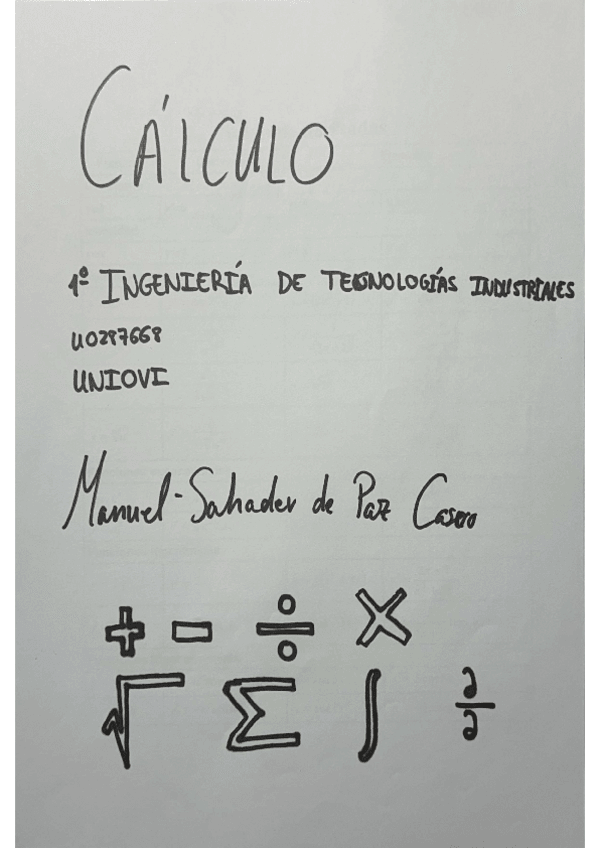 CÁLCULO
1º INGENIERÍA DE TECNOLOGÍAS INDUSTRIALES
UO287668
UNIOVI
Manuel-Salvador de Paz Casero
+ - ÷ ×
√ Σ ∫ ∂/∂